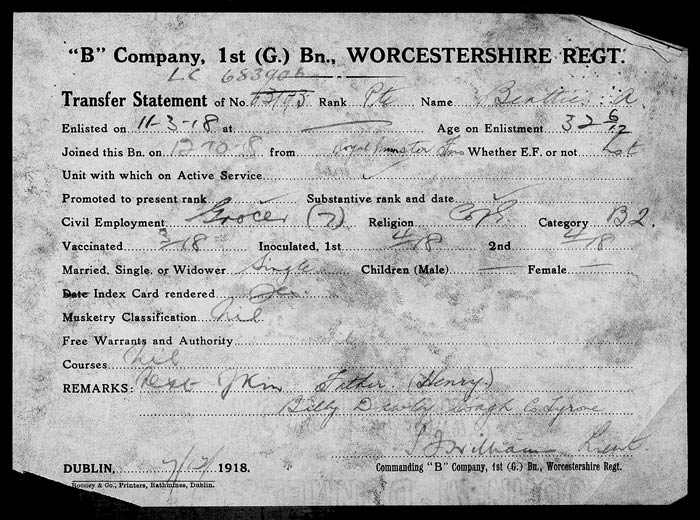 "B" Company, 1st (G.) Bn., WORCESTERSHIRE REGT.
LC 683906
Transfer Statement of No. Rank Pte Name Beattie A.
Enlisted on 11-3-18 at Age on Enlistment 32 6/12
Joined this Bn. on 12-10-18 from Royal Munster Fus Whether E.F. or not not
Unit with which on Active Service
Promoted to present rank Substantive rank and date
Civil Employment Grocer (7) Religion Category B2.
Vaccinated 3/18 Inoculated, 1st 4/18 2nd 4/18
Married, Single, or Widower Single Children (Male) — Female —
Date Index Card rendered Yes
Musketry Classification Nil
Free Warrants and Authority
Courses Nil
REMARKS: Next of Kin Father (Henry)
Billy Co. Tyrone
Williams Lieut.
DUBLIN, 7/12/ 1918. Commanding "B" Company, 1st (G.) Bn., Worcestershire Regt.
Rooney & Co., Printers, Rathmines, Dublin.